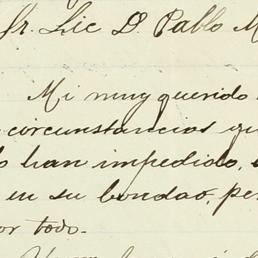 Sr. Lic D. Pablo M
Mi muy querido
circunstancias qu
lo han impedido,
en su bondad, pe
or todo.